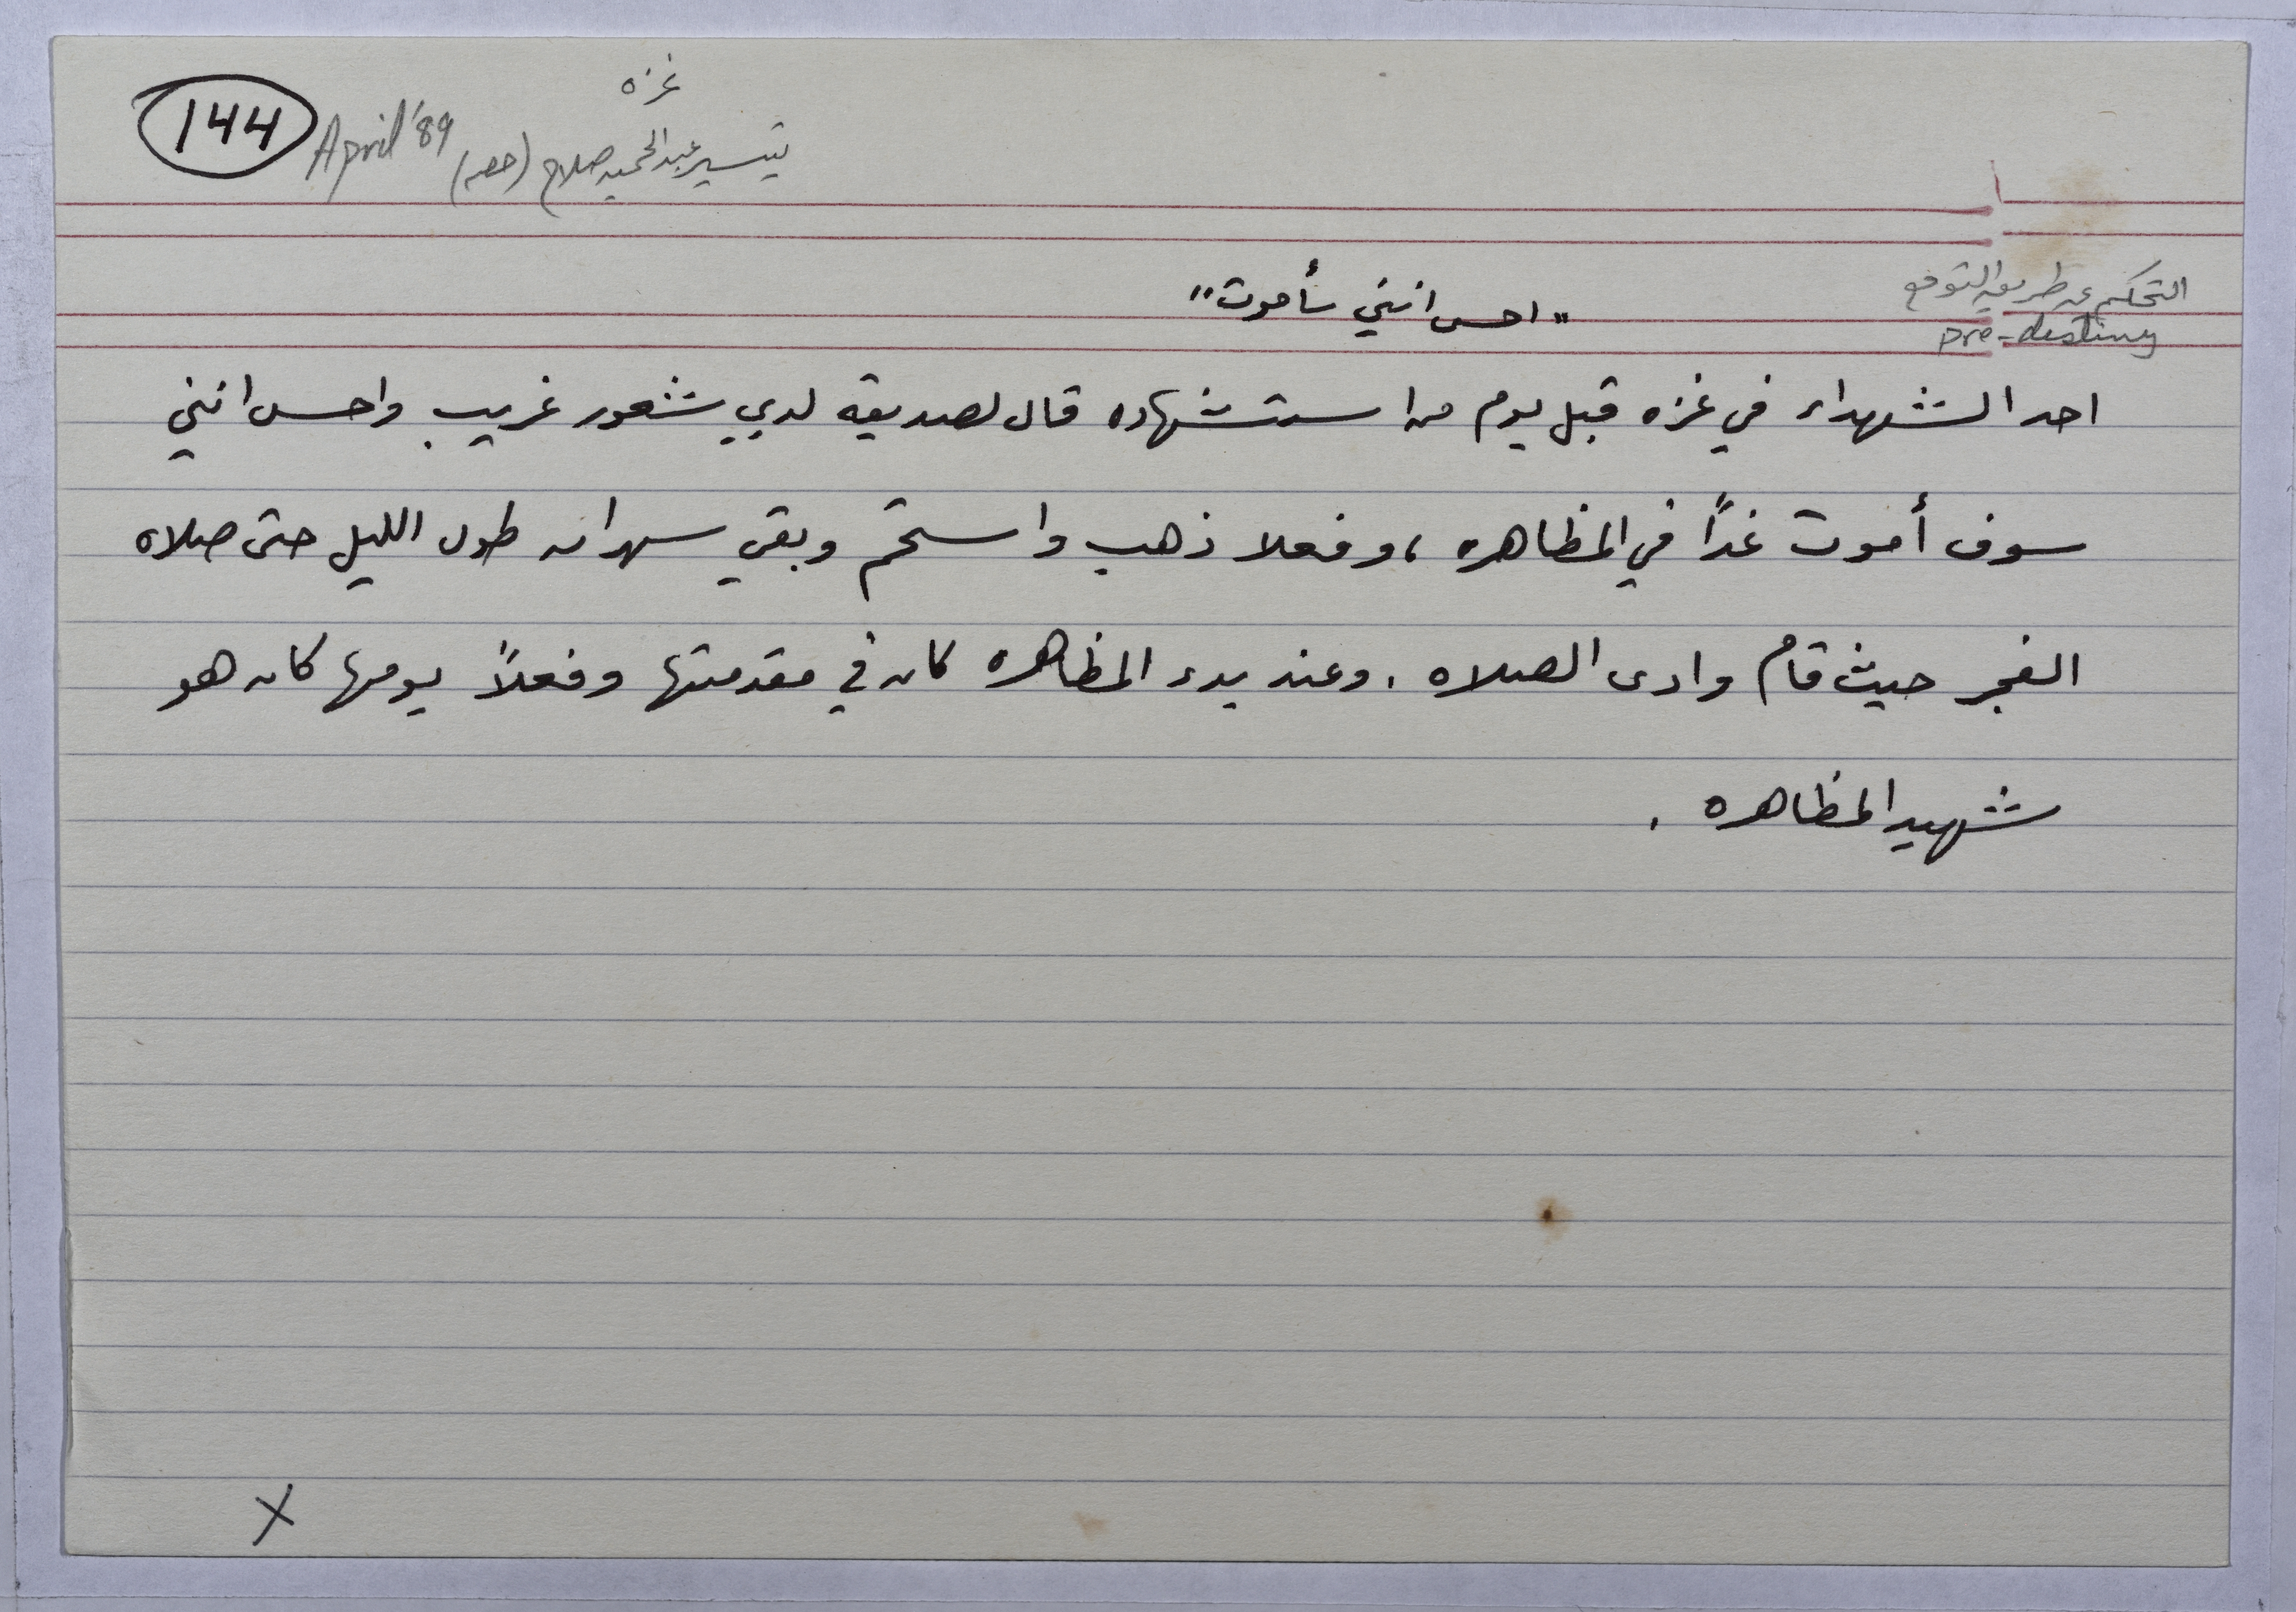 144
April '89
غزه
تيسير عبدالحميد صلاح
التحكم عن طريق التوقع
pre-destiny
"احس انني سأموت"
احد الشهداء في غزه قبل يوم من استشهاده قال لصديقه لدي شعور غريب واحس انني
سوف أموت غداً في المظاهره ، وفعلا ذهب واستحم وبقي سهران طول الليل حتى صلاه
الفجر حيث قام وادى الصلاه . وعند بدء المظاهره كان في مقدمتها وفعلاً يومها كان هو
شهيد المظاهره .
X